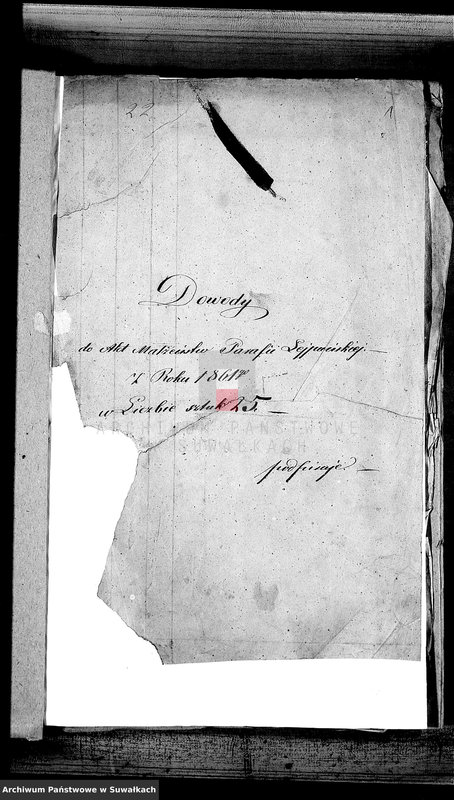 22
1
Dowody
do Akt Małżeństw Parafii Lejpuńskiej
z Roku 1861go
w Liczbie sztuk 25.
ARCHIWUM PAŃSTWOWE
W SUWAŁKACH
podpisuje
Archiwum Państwowe w Suwałkach